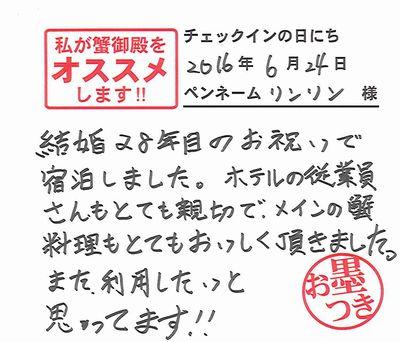 私が蟹御殿を
オススメ
します!!
チェックインの日にち
2016年 6月 24日
ペンネーム リンリン 様
結婚28年目のお祝いで
宿泊しました。ホテルの従業員
さんもとても親切で、メインの蟹
料理もとてもおいしく頂きました。
また、利用したいと
思ってます!!
お墨つき